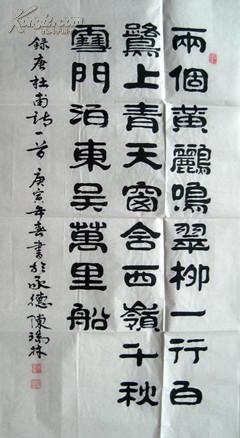 兩個黃鸝鳴翠柳一行白
鷺上青天窗含西嶺千秋
雪門泊東吳萬里船
録唐杜甫诗一首 庚寅年春書於承德 陳瑞林